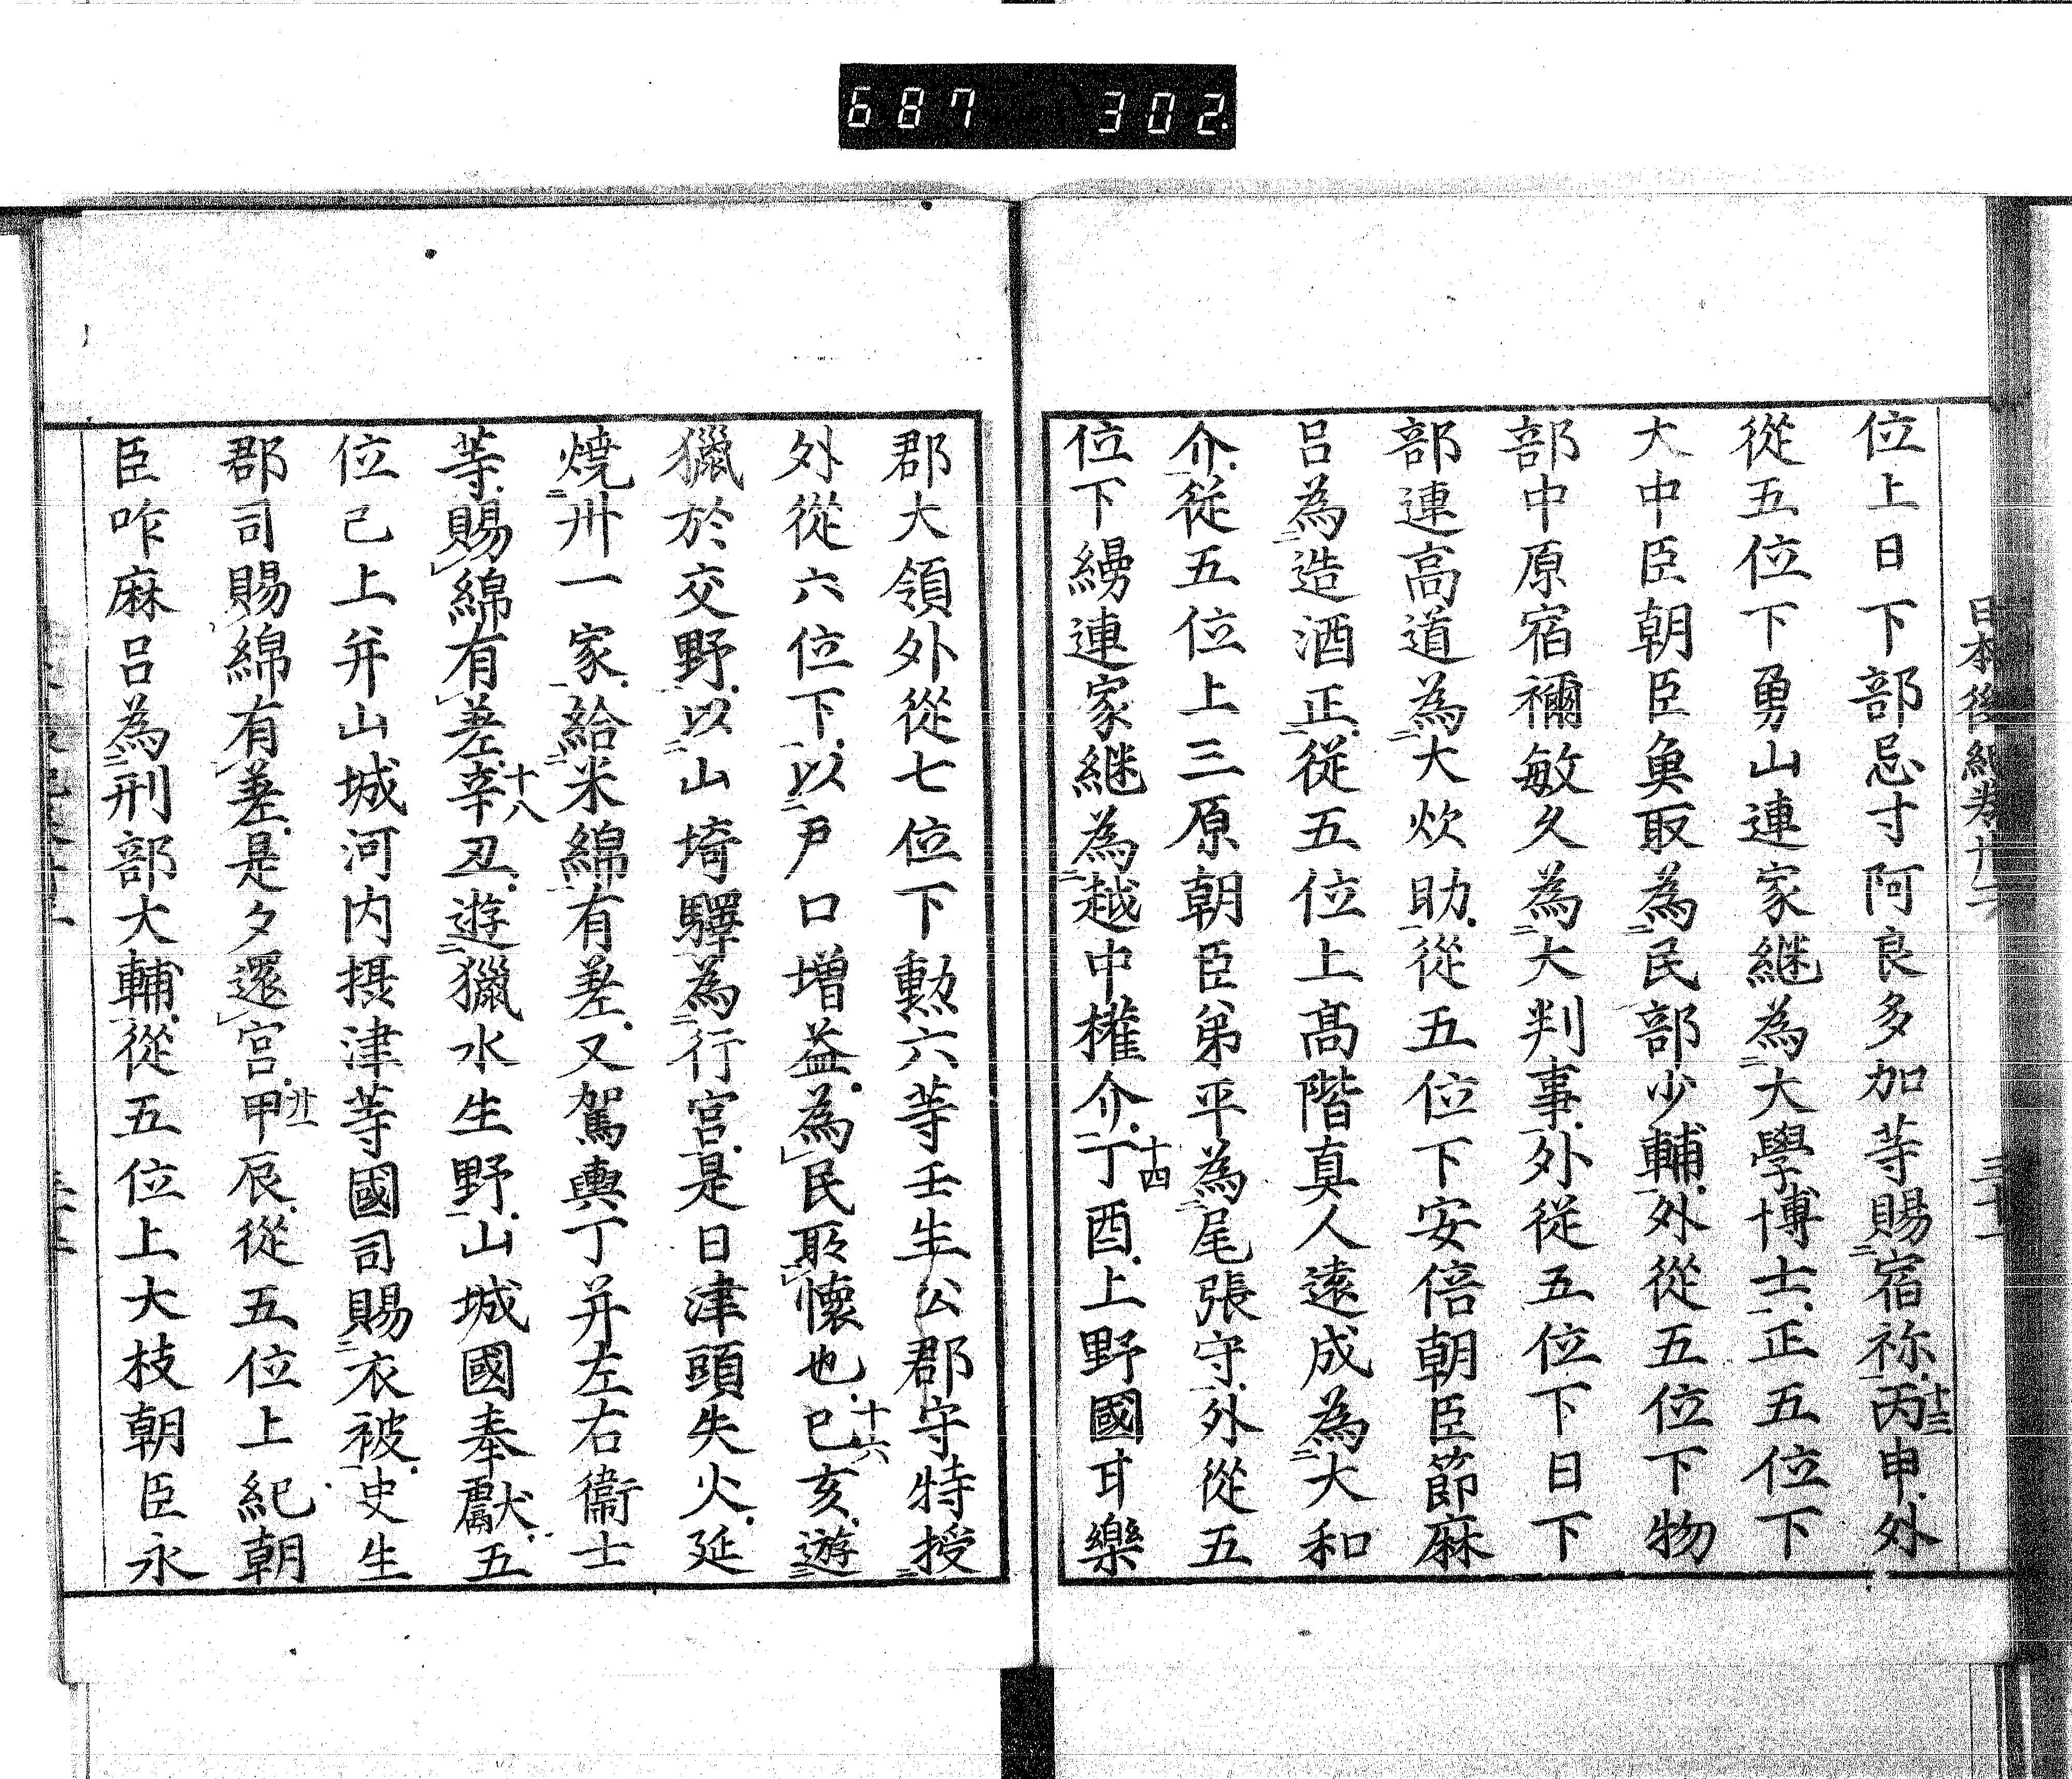 687 302
日本後紀卷廿二
位上日下部忌寸阿良多加等賜宿祢丙申外
從五位下勇山連家継為大學博士正五位下
大中臣朝臣魚取為民部少輔外從五位下物
部中原宿禰敏久為大判事外從五位下日下
部連高道為大炊助從五位下安倍朝臣節麻
呂為造酒正從五位上髙階真人遠成為大和
介從五位上三原朝臣弟平為尾張守外從五
位下縵連家継為越中權介丁酉上野國甘樂
郡大領外從七位下勲六等壬生公郡守特授
外從六位下以戸口增益為民所懷也已亥遊
獵於交野以山埼驛為行宮是日津頭失火延
燒卅一家給米綿有差又駕輿丁并左右衞士
等賜綿有差辛丑遊獵水生野山城國奉獻五
位已上并山城河内摂津等國司賜衣被史生
郡司賜綿有差是夕還宮甲辰從五位上紀朝
臣咋麻呂為刑部大輔從五位上大枝朝臣永
十三
十四
十六
十八
廿一